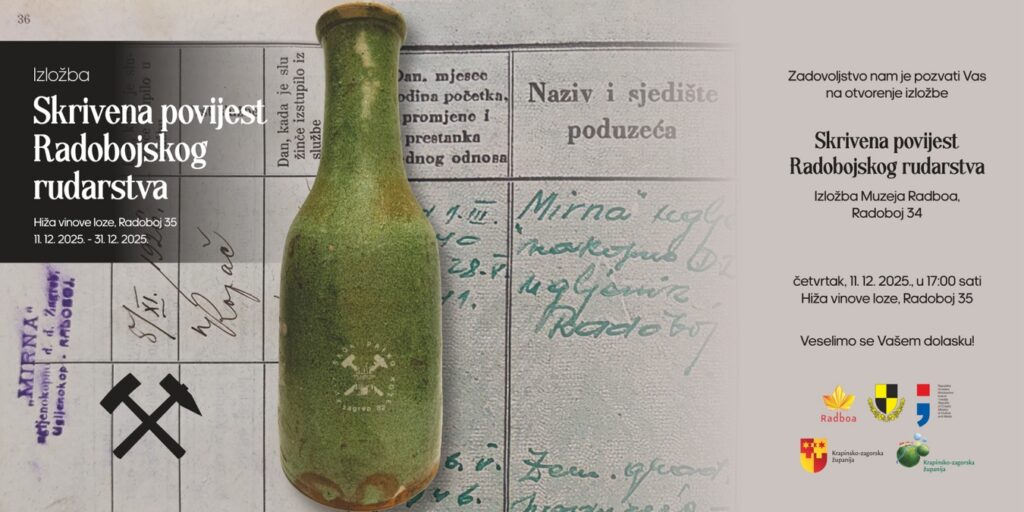 36
Izložba
Skrivena povijest
Radobojskog
rudarstva
Hiža vinove loze, Radoboj 35
11. 12. 2025. - 31. 12. 2025.
Dan, kada je slu
žinče izstupilo iz
službe
Dan, mjesec
godina početka,
promjene i
prestanka
dnog odnosa
Naziv i sjedište
poduzeća
"Mirna"
ugljenik
Radoboj
"MIRNA"
d. d. Zagreb,
Ugljenokop - RADOBOJ.
Zagreb
Zadovoljstvo nam je pozvati Vas
na otvorenje izložbe
Skrivena povijest
Radobojskog rudarstva
Izložba Muzeja Radboa,
Radoboj 34
četvrtak, 11. 12. 2025., u 17:00 sati
Hiža vinove loze, Radoboj 35
Veselimo se Vašem dolasku!
Radboa
Krapinsko-zagorska
županija
Krapinsko-zagorska
županija